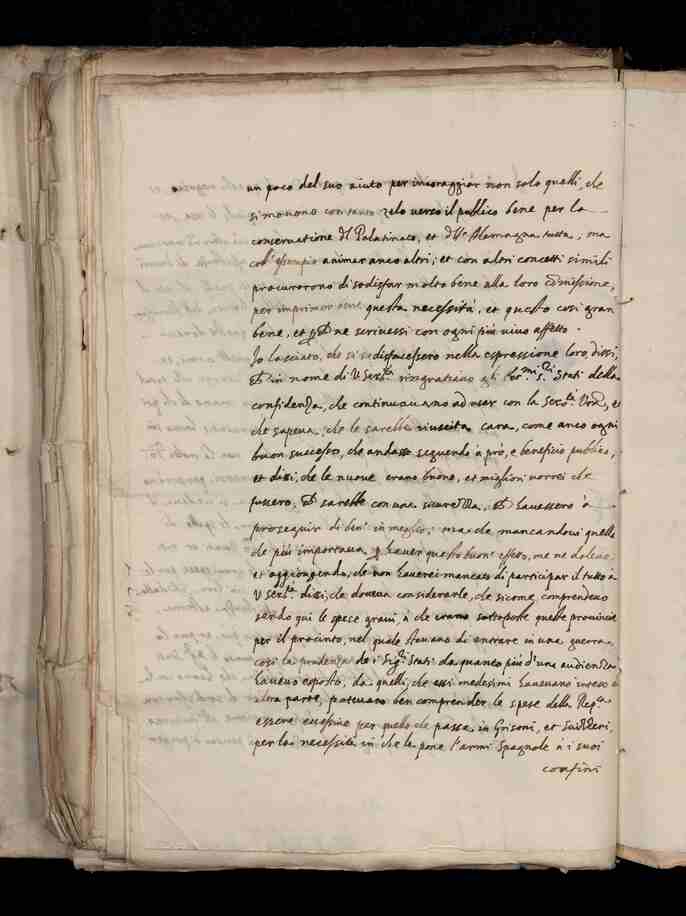 un poco del suo aiuto per incoraggiar non solo quelli, che
si movono con tanto zelo verso il publico bene per la
conservatione del Palatinato, et dell'Alemagna tutta; ma
coll'essempio animar anco altri; et con altri concetti simili
procurorono di sodisfar molto bene alla loro commissione,
per imprimer bene questa necessità, et questo così gran
bene, et ch'io ne scrivessi con ogni più vivo affetto.
Io lasciato, che si sodisfacessero nella espressione loro, dissi,
che in nome di V. Ser.tà ringratiavo gli Ill.mi S.ri Stati della
confidenza, che continuavano ad usar con la Ser.tà V.ra, et
che sapeva, che le sarebbe riuscita cara, come anco ogni
buon successo, che andasse seguendo à prò, e beneficio publico,
et dissi, che le nuove erano buone, et migliori vorrei che
fussero, che sarebbe con una sicurezza, che havessero à
proseguir di ben' in meglio; ma che mancandovi quelle
che più importava per haver questo buon' effetto, me ne doleva
et aggiongendo, che non haverei mancato di participar il tutto à
V. Ser.tà dissi, che doveva considerarle, che sicome comprendevo
essendo qui le spese gravi, à che erano sottoposte queste provincie
per il procinto, nel quale stavano di entrare in una guerra,
così la prudenza de i Sig.ri Stati da quanto più d'una audienza
havevo esposto, da quelli, che essi medesimi havevano inteso d'
altra parte, potevano ben comprender le spese della Rep.ca
essere eccessive per quello che passa in Grisoni, et Suizzeri,
per la necessità in che le pone l'armi Spagnole à i suoi
confini